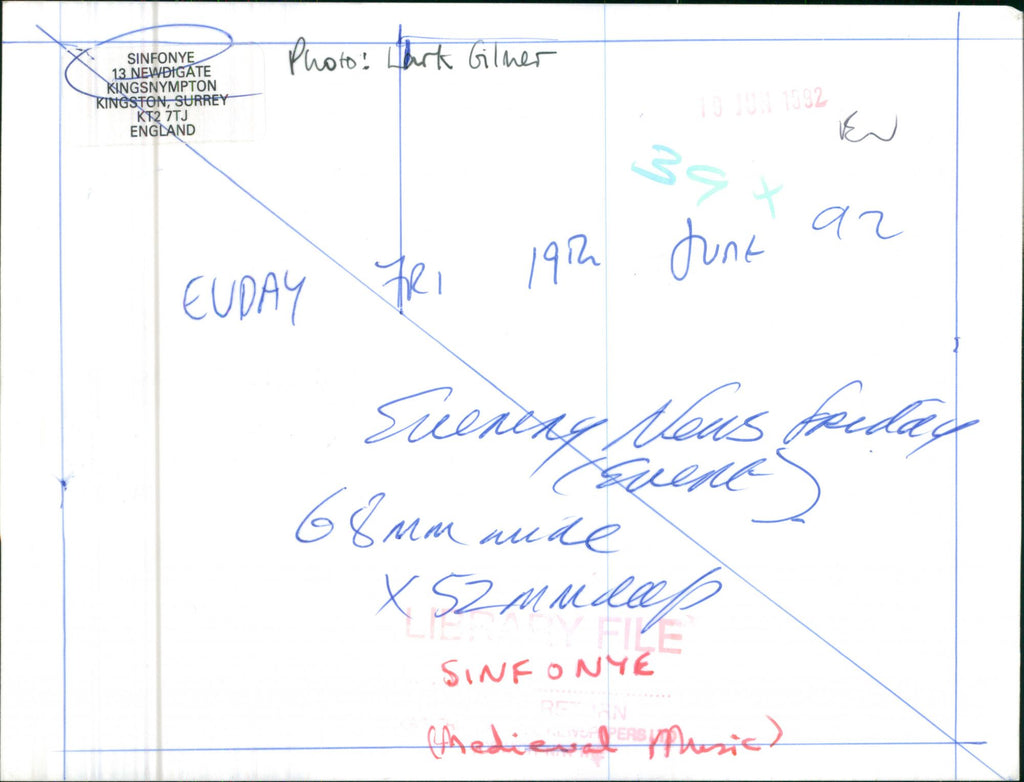 SINFONYE
13 NEWDIGATE
KINGSNYMPTON
KINGSTON, SURREY
KT2 7TJ
ENGLAND
Photo: Gilner
JUN 1992
EW
39 x
EVDAY FRI 19th JUNE 92
Evening News Friday
(Event)
68mm wide
x 52mm deep
LIBRARY FILE
SINFONYE
RETURN
(Medieval Music)